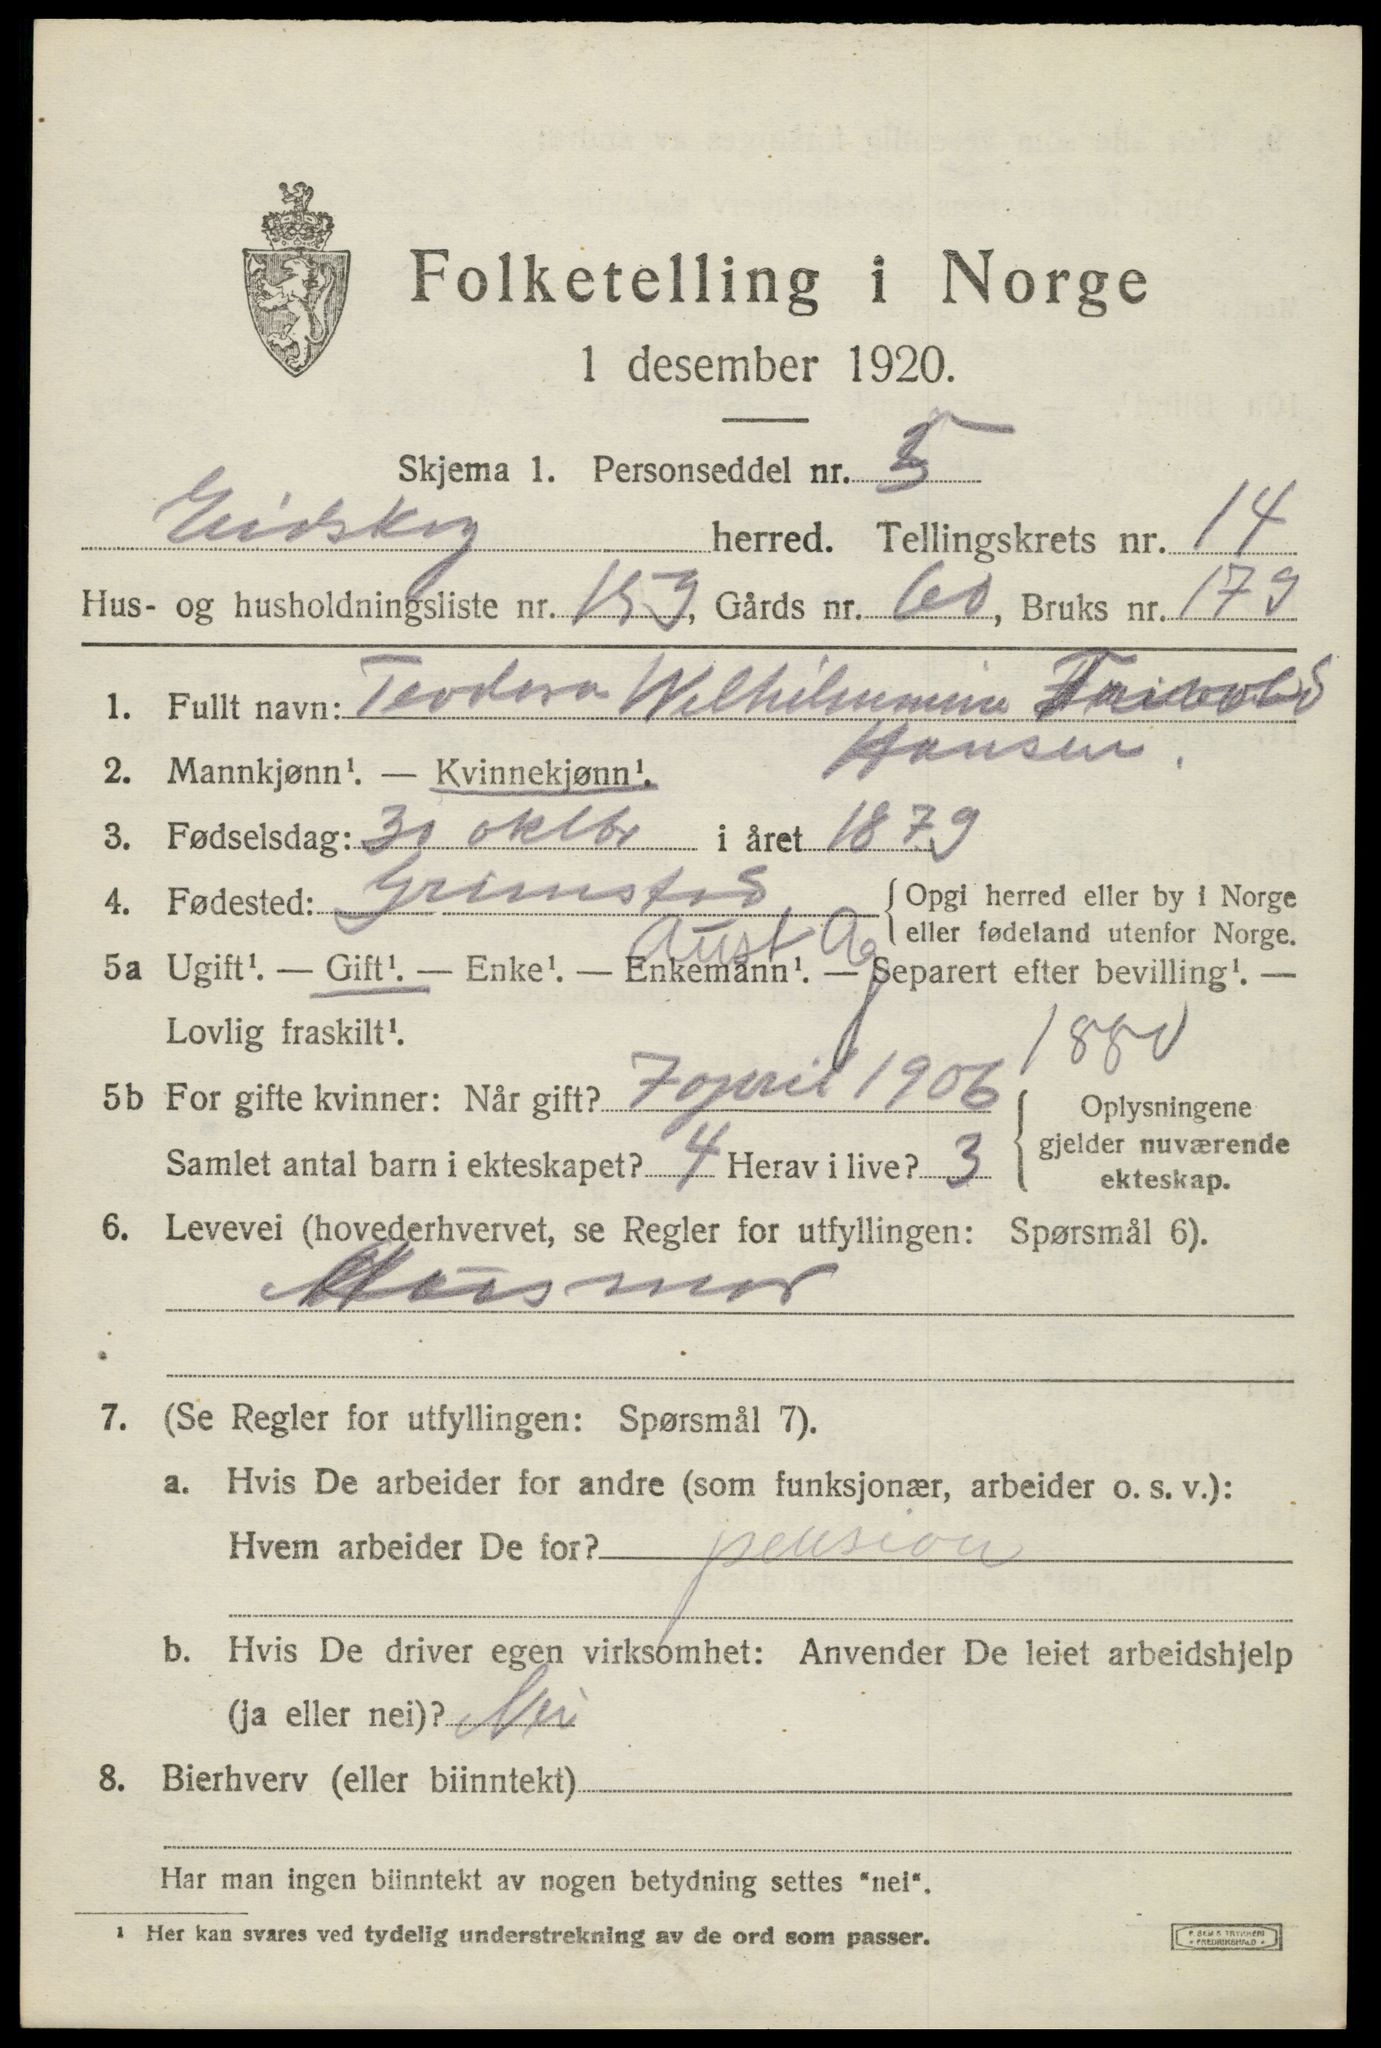 Folketelling i Norge
1 desember 1920.
Skjema 1. Personseddel nr. 5
Eidskog herred. Tellingskrets nr. 14
Hus- og husholdningsliste nr. 153, Gårds nr. 60, Bruks nr. 179
1. Fullt navn: Teodora Wilhilmmine
Hansen.
2. Mannkjønn¹. — Kvinnekjønn¹.
3. Fødselsdag: 30 oktbr i året 1879
4. Fødested: Grimstad { Opgi herred eller by i Norge
Aust Ag eller fødeland utenfor Norge.
5a Ugift¹. — Gift¹. — Enke¹. — Enkemann¹. — Separert efter bevilling¹. —
Lovlig fraskilt¹.
1880
5b For gifte kvinner: Når gift? 7 april 1906 { Oplysningene
gjelder nuværende
Samlet antal barn i ekteskapet? 4 Herav i live? 3 ekteskap.
6. Levevei (hovederhvervet, se Regler for utfyllingen: Spørsmål 6).
Husmor
7. (Se Regler for utfyllingen: Spørsmål 7).
a. Hvis De arbeider for andre (som funksjonær, arbeider o. s. v.):
Hvem arbeider De for? pension
b. Hvis De driver egen virksomhet: Anvender De leiet arbeidshjelp
(ja eller nei)? Nei
8. Bierhverv (eller biinntekt)
Har man ingen biinntekt av nogen betydning settes "nei".
¹ Her kan svares ved tydelig understrekning av de ord som passer.
F. SEM & TRYKKERI
• FREDRIKSHALD •